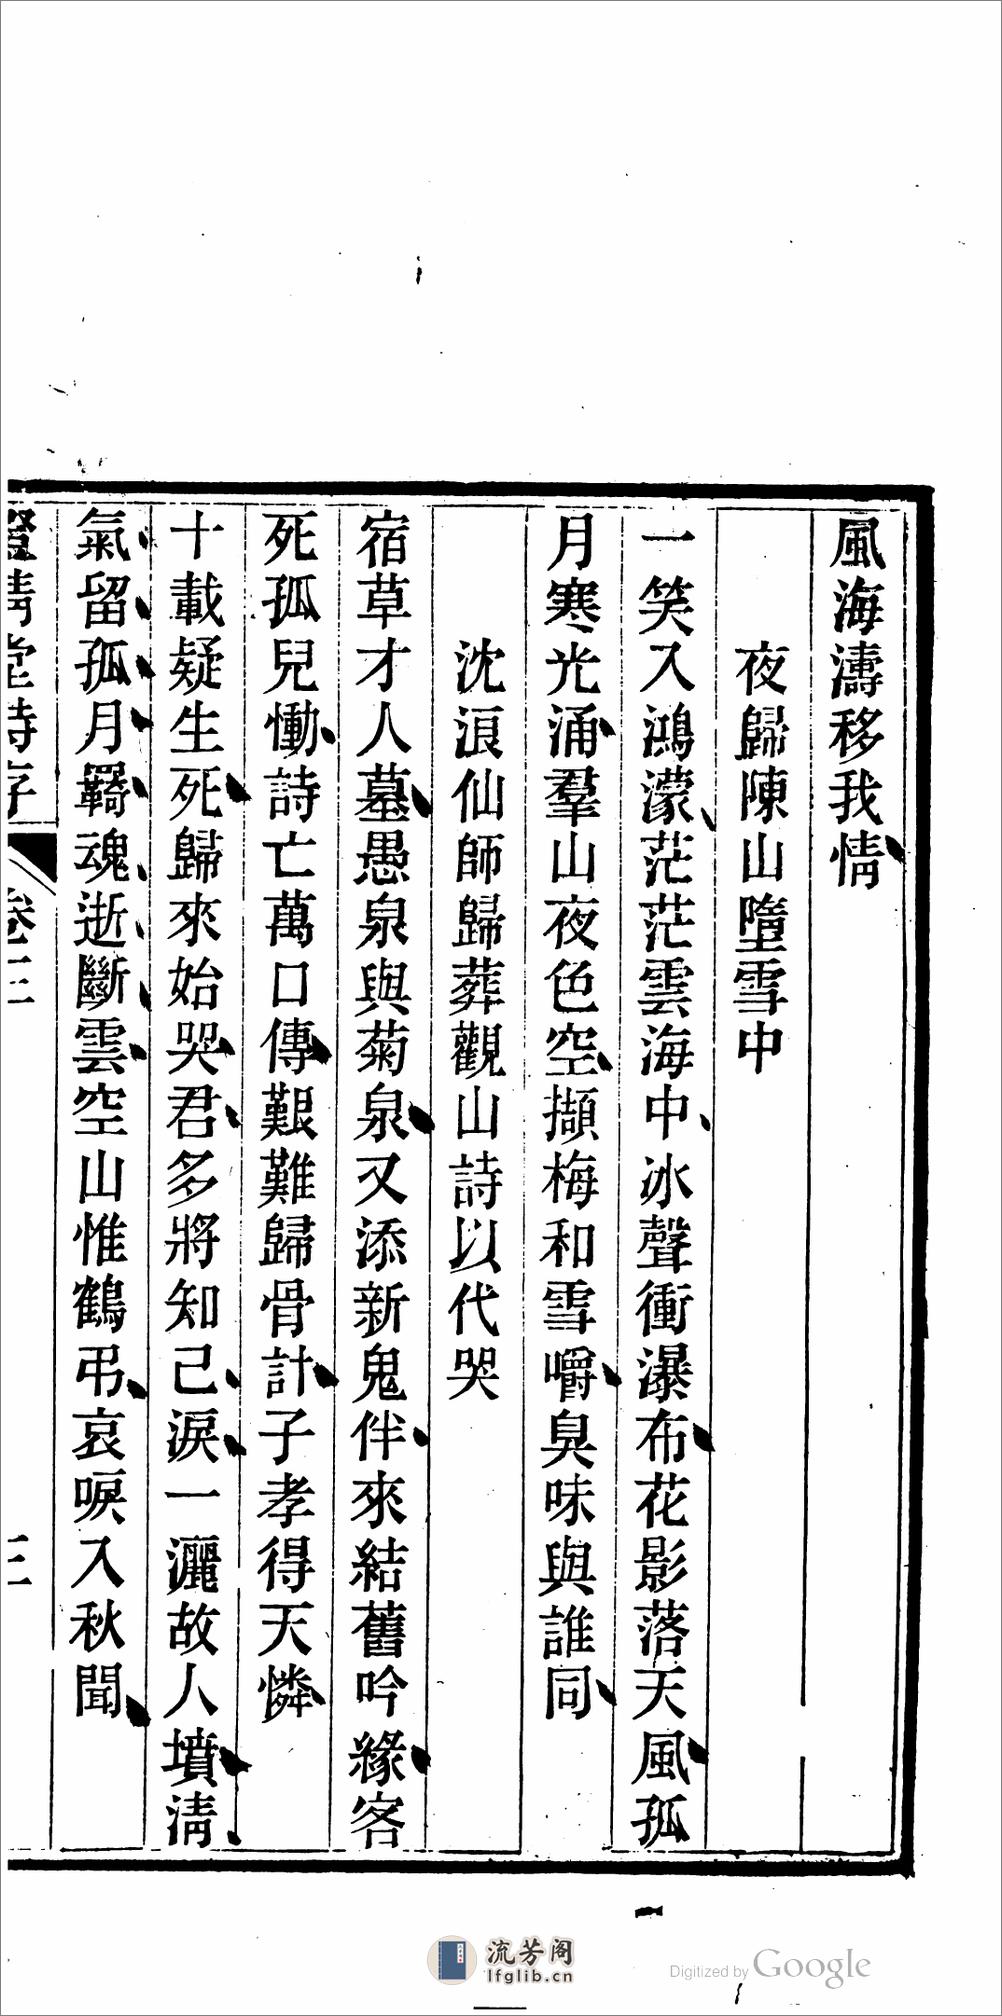 風海濤移我情
夜歸陳山墮雪中
一笑入鴻濛茫茫雲海中冰聲衝瀑布花影落天風孤
月寒光涌羣山夜色空擷梅和雪嚼臭味與誰同
沈浪仙師歸葬觀山詩以代哭
宿草才人墓愚泉與菊泉又添新鬼伴來結舊吟緣客
死孤兒慟詩亡萬口傳艱難歸骨計子孝得天憐
十載疑生死歸來始哭君多將知己淚一灑故人墳淸
氣留孤月羇魂逝斷雲空山惟鶴弔哀唳入秋聞
淸堂詩存 卷三 三
流芳阁
lfglib.cn
Digitized by Google